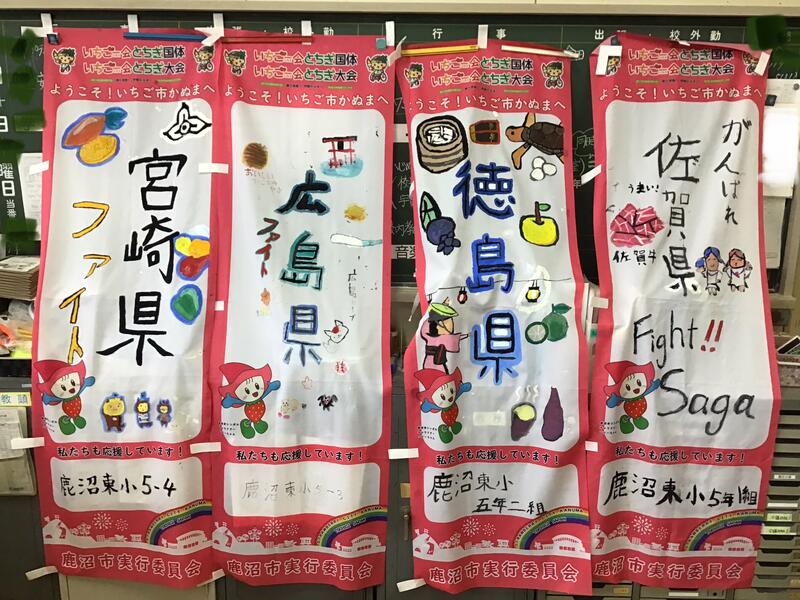 行 事
出 張
校外勤
いちご一会とちぎ国体
いちご一会とちぎ大会
ようこそ!いちご市かぬまへ
宮崎県
ファイト
私たちも応援しています!
鹿沼東小5-4
鹿沼市実行委員会
いちご一会とちぎ国体
いちご一会とちぎ大会
ようこそ!いちご市かぬまへ
広島県
ファイト
私たちも応援しています!
鹿沼東小5-3
鹿沼市実行委員会
いちご一会とちぎ国体
いちご一会とちぎ大会
ようこそ!いちご市かぬまへ
徳島県
私たちも応援しています!
鹿沼東小
五年二組
鹿沼市実行委員会
いちご一会とちぎ国体
いちご一会とちぎ大会
ようこそ!いちご市かぬまへ
がんばれ
佐賀県
うまい!
佐賀牛
Fight!!
Saga
私たちも応援しています!
鹿沼東小5年1組
鹿沼市実行委員会
曜日
当番
教頭